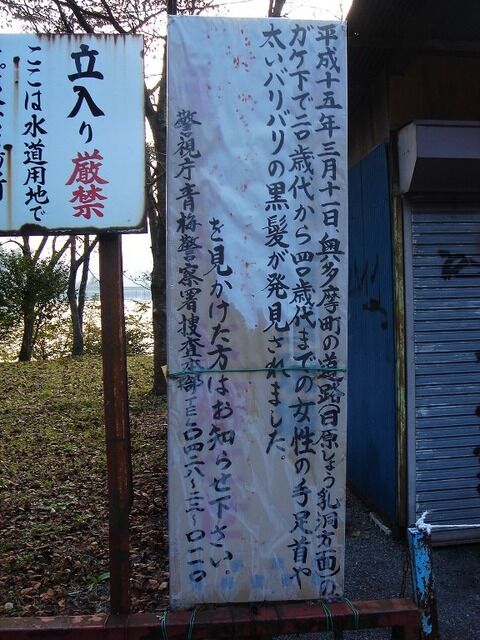 平成十五年三月十一日奥多摩町の道路(日原しょう乳洞方面)の
ガケ下で二〇歳代から四〇歳代までの女性の手足首や
太いバリバリの黒髪が発見されました。
を見かけた方はお知らせ下さい。
警視庁青梅警察署捜査本部TEL〇四二八〜二二〜〇一一〇
立入り厳禁
ここは水道用地で